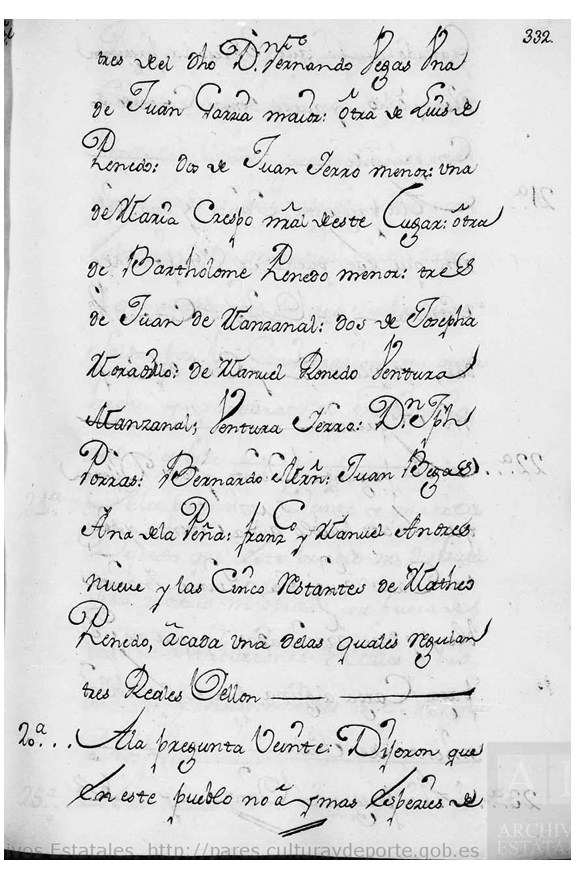 332.
tres del dho D.n Vizte Fernando Vegas Una
de Juan Garzia maior: ôtra de Luis de
Renedo: dos de Juan Fierro menor: una
de Maria Crespo nral deeste Lugar: ôtra
de Bartholome Renedo menor: tres
de Juan de Manzanal: dos de Josepha
Moradillo: de Manuel Renedo Ventura
Manzanal; Ventura Fierro: D.n Jph
Porras: Bernardo Mrn: Juan Begas
Ana dela Peña: franz.co y Manuel Andres
nueve y las Cinco Restantes de Matheo
Renedo, âcada una delas quales regulan
tres Reales Vellon
20.ª... Ala pregunta Veinte: Dijeron que
En este pueblo no ây mas Especies de
ivos Estatales. http://pares.culturaydeporte.gob.es
ARCHIV
ESTATAL